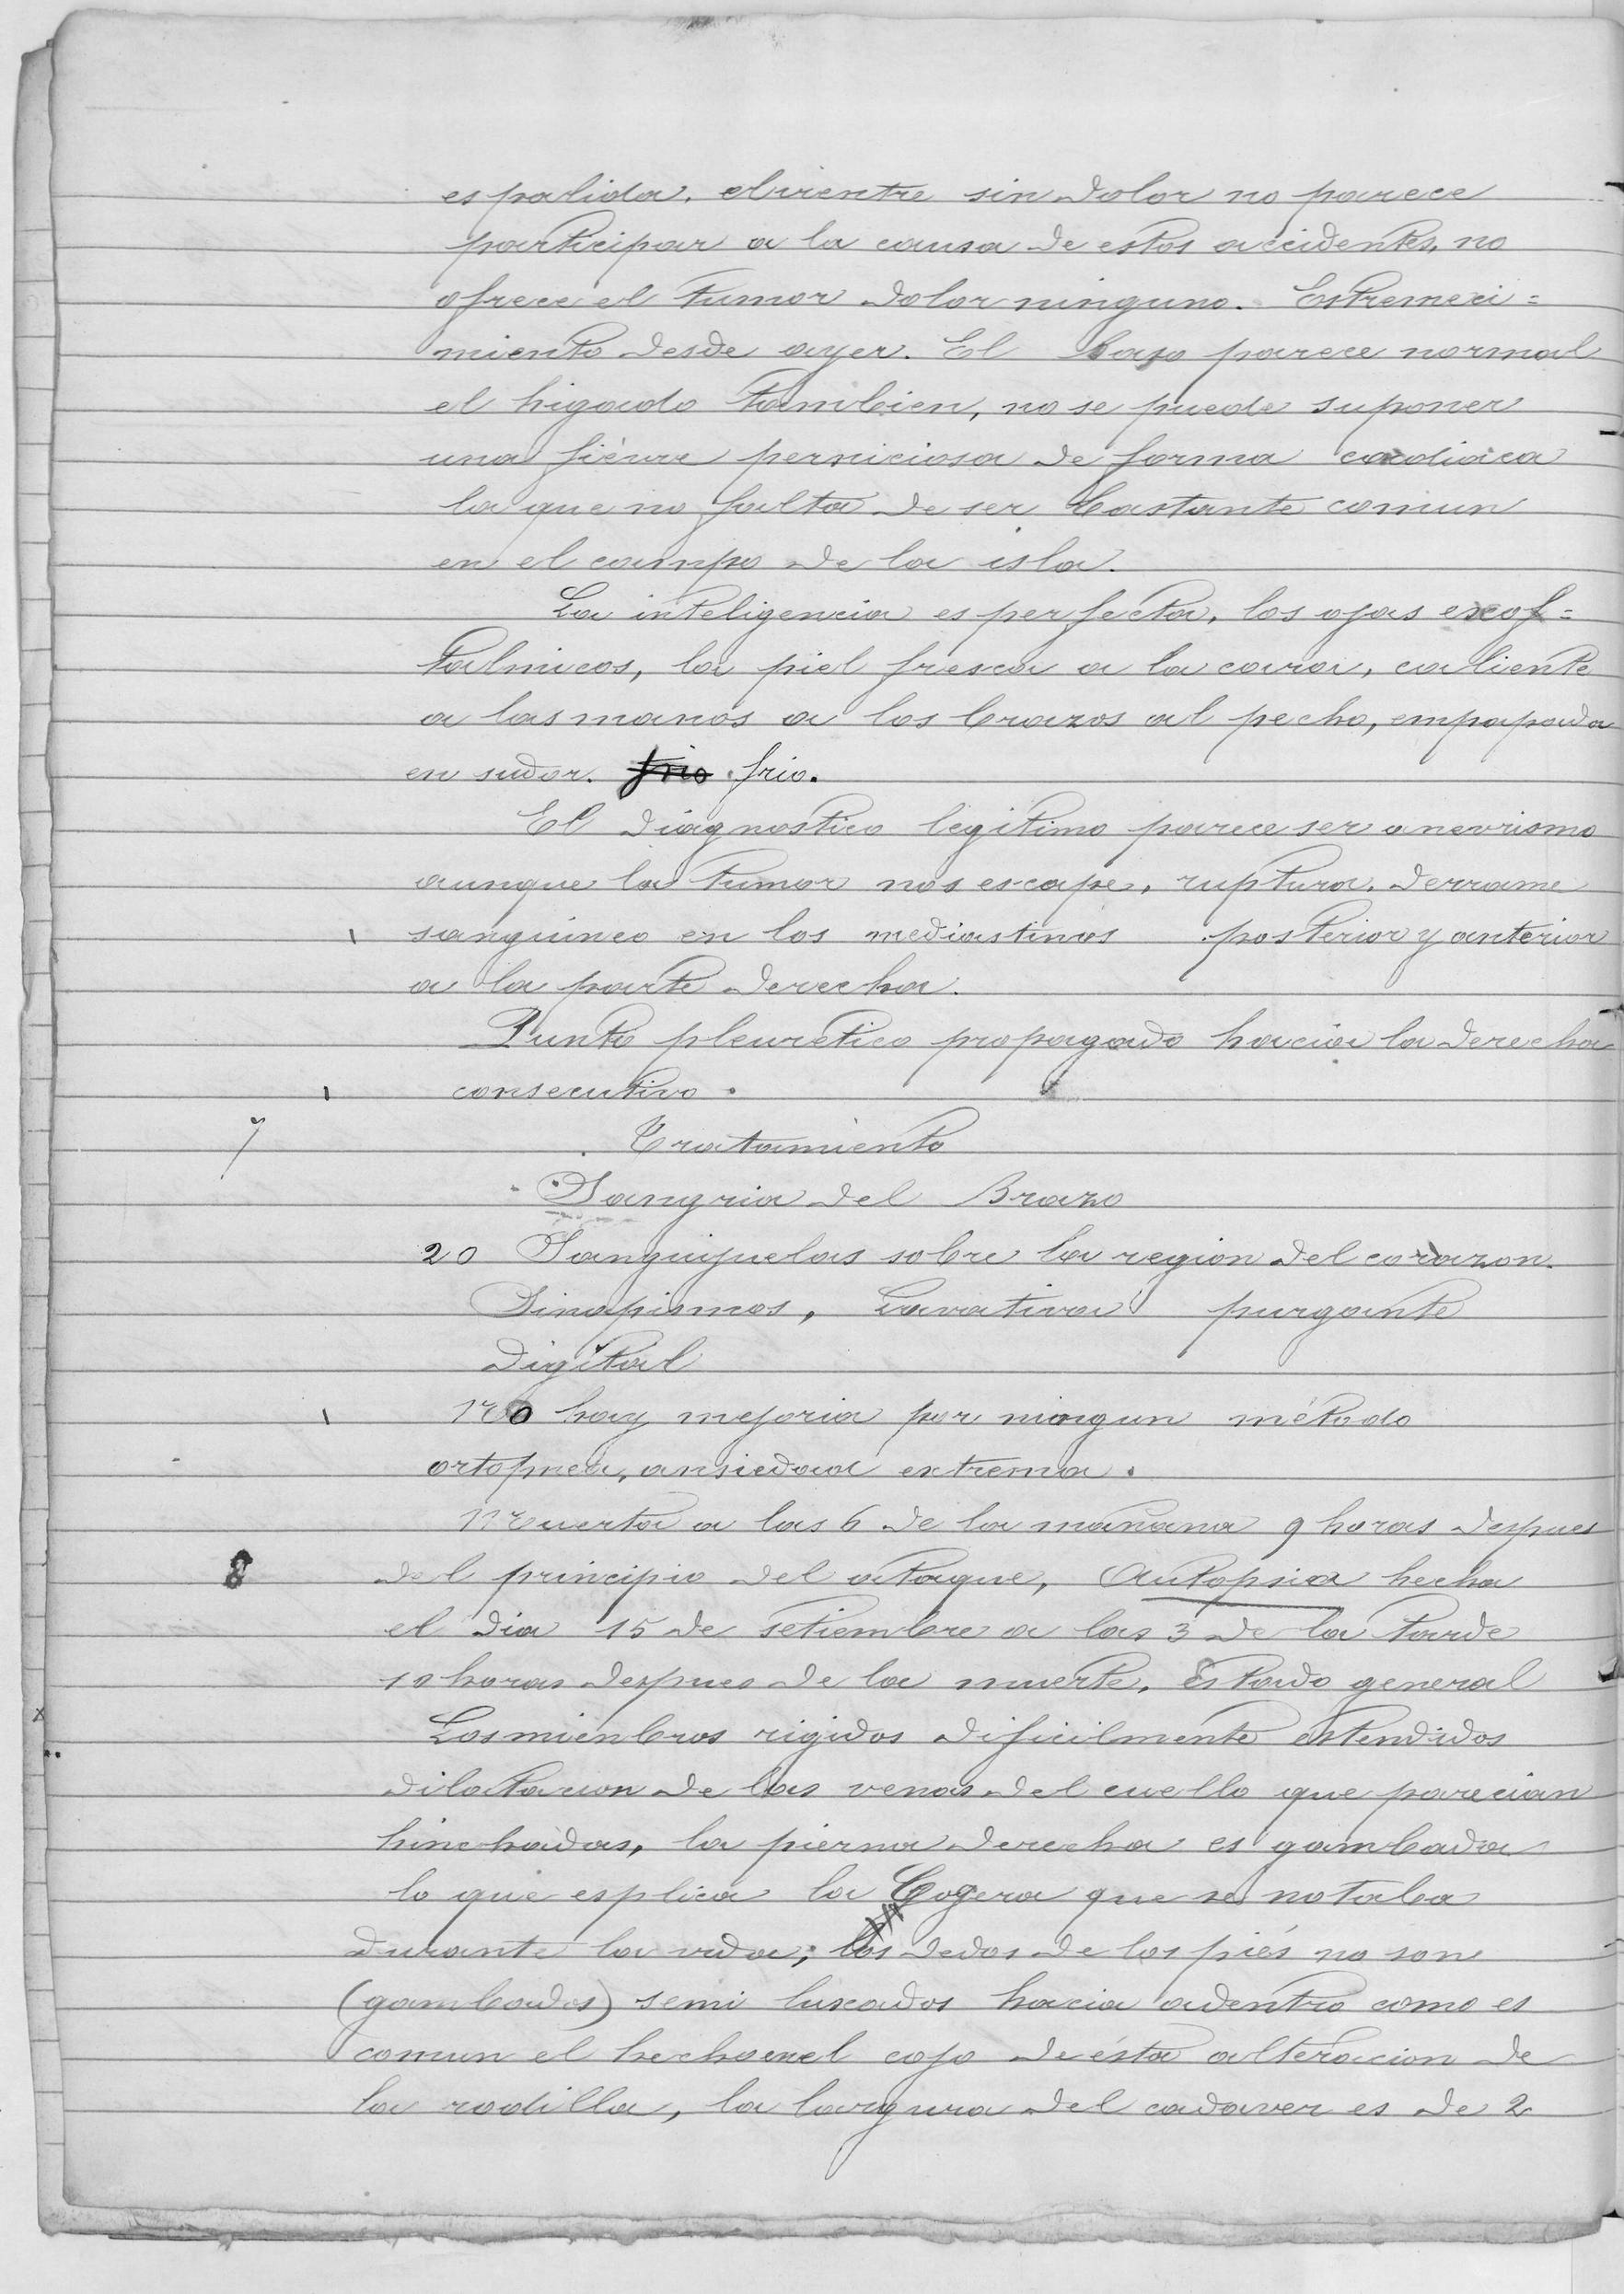 es palida. el vientre sin dolor no parece
participar a la causa de estos accidentes, no
ofrece el tumor dolor ninguno. Estremeci=
miento desde ayer. El Bazo parece normal
el higado tambien, no se puede suponer
una fiévre perniciosa de forma cardiaca
la que no falta de ser bastante comun
en el campo de la isla.
La inteligencia es perfecta, los ojos exof=
talmicos, la piel fresca a la cara, caliente
a las manos a los brazos al pecho, empapada
en sudor. frio frio.
El diagnostico legitimo parece ser anevrismo
aunque la tumor nos escape, ruptura, derrame
sanguineo en los mediastinos posterior y anterior
a la parte derecha.
Punto pleuretico propagado hacia la derecha
consecutivo.
7 Tratamiento
Sangria del Brazo
20 Sanguijuelas sobre la region del corazon.
Sinapismos, Lavativa purgante
Digital
No hay mejoria por ningun método
ortopnea, ansiedad extrema.
Muerta a las 6 de la mañana 9 horas despues
8 del principio del ataque, Autopsia hecha
el dia 15 de setiembre a las 3 de la tarde
10 horas despues de la muerte. Estado general
Los mienbros rigidos dificilmente estendidos
dilatacion de las venas del cuello que parecian
hinchadas, la pierna derecha es gambada
lo que esplica la Cogera que se notaba
durante la vida; los dedos de los piés no son
(gambados) semi luxados hacia adentro como es
comun el hecho en el cojo de ésta alteracion de
la rodilla, la largura del cadaver es de 2